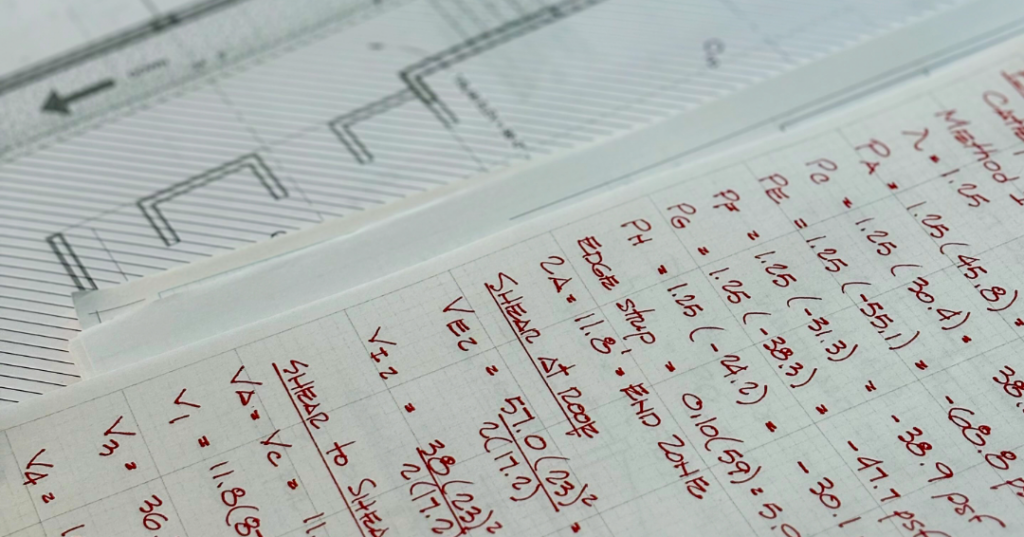 Method 1
λ = 1.25
PA = 1.25 (45.8) =
PC = 1.25 (30.4) = 38.
PE = 1.25 (-55.1) = -68.8 p
PF = 1.25 (-31.3) = -38.9 psf
PG = 1.25 (-38.3) = -47.7 psf
PH = 1.25 (-24.2) = -30.1
EDGE strip = 0.10(59) = 5.9
2A = 11.8' = END ZONE
SHEAR At ROOF
VE2 = 57.0 (23)² =
2(17.2)
VI2 = 38(23)²
2(17.2)
SHEAR to SHEA
VA = VC = 11.
V1 = 11.8(8
V3 = 36
V4 = 1